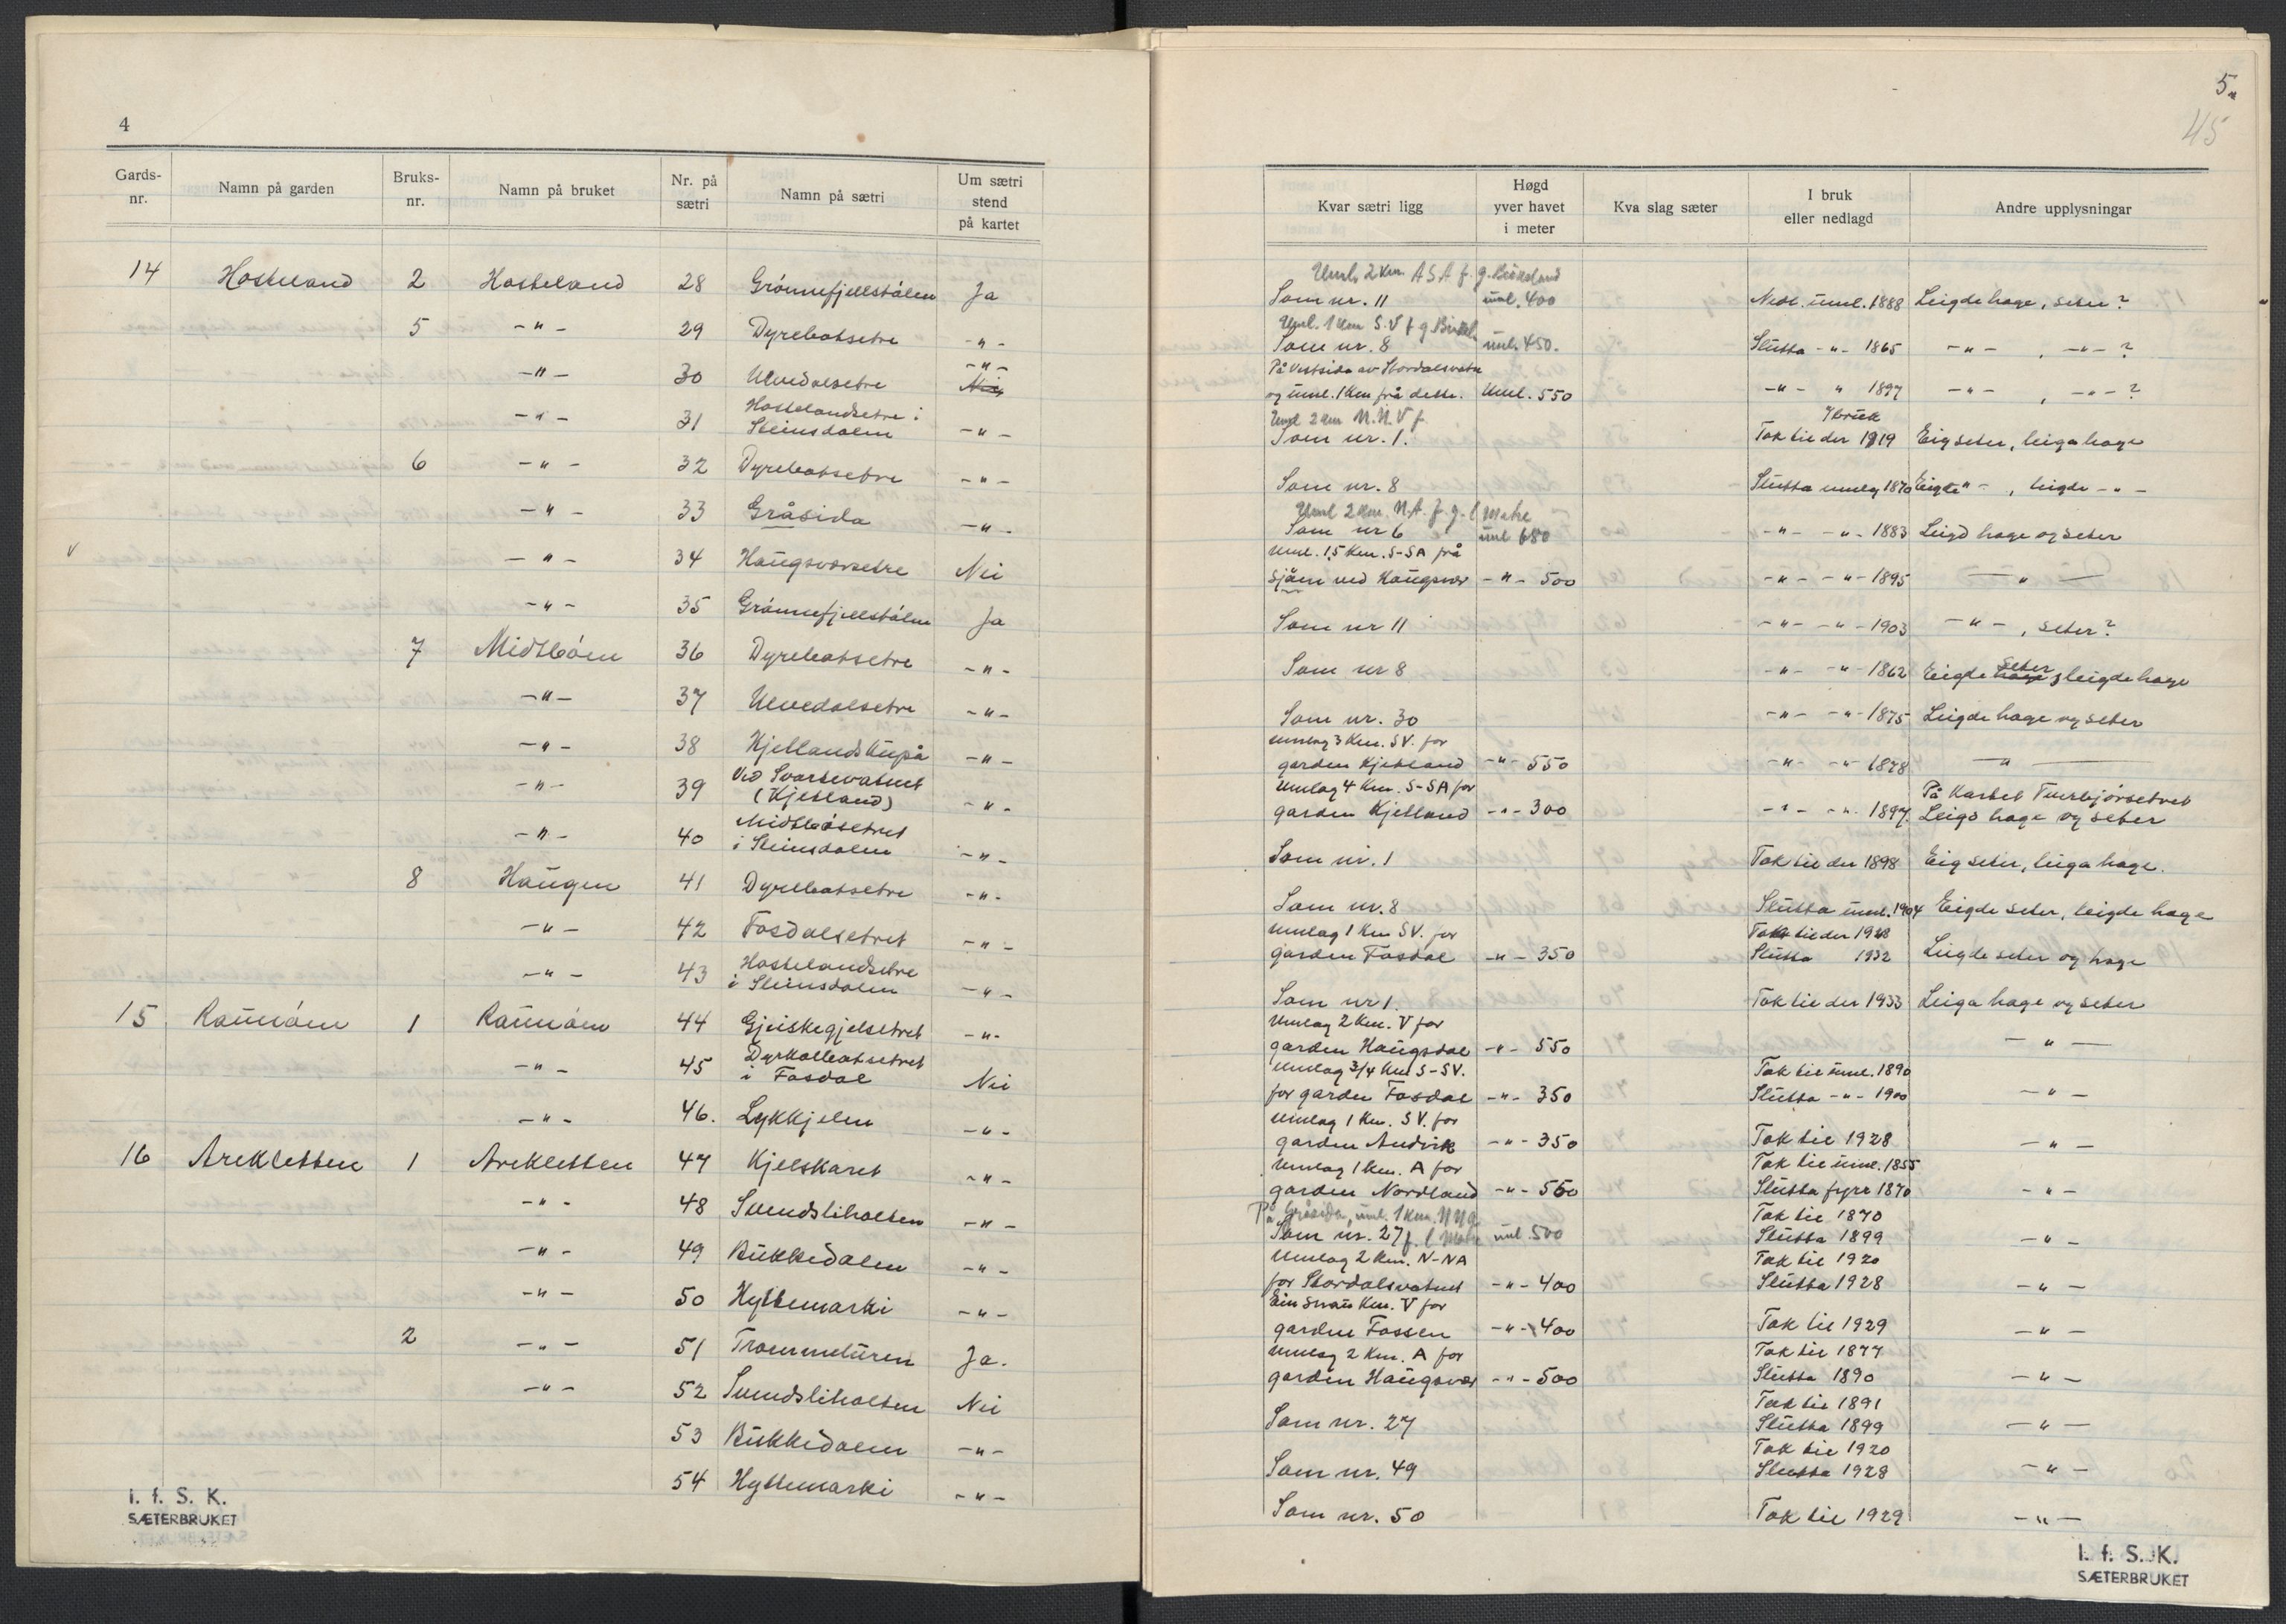 4
Gards-nr. Namn på garden Bruks-nr. Namn på bruket Nr. på sætri Namn på sætri Um sætri stend på kartet
14 Hosteland 2 Hosteland 28 Grønnefjellstølen Ja
5 -"- 29 Dyrebotsetre -"-
-"- 30 Ulvedalsetre -"- Nei
-"- 31 Hostelandsetre i Steinsdalen -"-
6 -"- 32 Dyrebotsetre -"-
-"- 33 Gråsida -"-
v -"- 34 Haugsværsetre Nei
-"- 35 Grønnefjellstølen Ja
7 Midtbøen 36 Dyrebotsetre -"-
-"- 37 Ulvedalsetre -"-
-"- 38 Kjetlandskupå -"-
-"- 39 Ved Svartevatnet (Kjetland) -"-
-"- 40 Midtbøsetret i Steinsdalen -"-
8 Haugen 41 Dyrebotsetre -"-
-"- 42 Fosdalsetret -"-
-"- 43 Hostelandsetre i Steinsdalen -"-
15 Raunøen 1 Raunøen 44 Gjeiskegjelsetret -"-
-"- 45 Dyrkolbotsetret i Fosdal Nei
-"- 46. Lykkjelen -"-
16 Arekletten 1 Arekletten 47 Kjelskaret -"-
-"- 48 Svendsliholten -"-
-"- 49 Bukkedalen -"-
-"- 50 Hyttemarki -"-
2 -"- 51 Trommeturen Ja.
-"- 52 Svendsliholten Nei
53 Bukkedalen -"-
54 Hyttemarki -"-
I. f. S. K.
SÆTERBRUKET
5.
45
Kvar sætri ligg Høgd yver havet i meter Kva slag sæter I bruk eller nedlagd Andre upplysningar
Uml. 2 km. ASA f. g. Birkeland
Som nr. 11 uml. 400 Nedl. uml. 1888 Leigde hage, seter?
Uml. 1 km S.V f g. Birkel.
Som nr. 8 uml. 450. Slutta -"- 1865 -"- , -"- ?
På Vestsida av Stordalsvatn
og uml. 1 Km frå dette. Uml. 550 -"- " 1897 -"- , -"- ?
Uml 2 km N.N.V f I bruk
Som nr. 1. Tok til der 1919 Eig seter, leiga hage
Som nr. 8 Slutta umlag 1870 Eigde -"- , leigde -"-
Uml 2 km. N.A. f. g. Matre
Som nr 6 uml 680 -"- -"- 1883 Leigd hage og seter
Uml. 1,5 Km. S-SA frå
sjøen ved Haugsvær -"- 500 -"- -"- 1895 -"-
Som nr 11 -"- -"- 1903 -"- , seter?
Som nr 8 -"- -"- 1862 Eigde hage seter, leigde hage
Som nr. 30 -"- -"- 1875 Leigde hage og seter
umlag 3 Km. SV. for
garden Kjetland -"- 550 -"- -"- 1878 -"-
Umlag 4 Km. S-SA for På Kartet Tverbjørsetret
garden Kjetland -"- 300 -"- -"- 1897. Leigd hage og seter
Som nr. 1 Tok til der 1898 Eig seter, leiga hage.
Som nr. 8 Slutta uml. 1904 Eigde seter, leigde hage
Umlag 1 Km SV. for Tok til der 1928
garden Fosdal -"- 350 Slutta 1932 Leigde seter og hage
Som nr 1 Tok til der 1933 Leiga hage og seter
Umlag 2 Km. V for
garden Haugsdal -"- 550 -"-
Umlag 3/4 Km S-SV. Tok til uml. 1890
for garden Fosdal -"- 350 Slutta -"- 1900 -"-
Umlag 1 Km. SV. for
garden Andvik -"- 350 Tok til 1928 -"-
Umlag 1 Km. A for Tok til uml. 1855
garden Nordland -"- 550 Slutta fyre 1870 -"-
På Gråsida, uml. 1 km. NNA Tok til 1870
Som nr. 27 f. Matre uml. 500 Slutta 1899 -"-
Umlag 2 Km. N-NA Tok til 1920
for Stordalsvatnet -"- 400 Slutta 1928 -"-
Ein snau Km. V for
garden Fossen -"- 400 Tok til 1929 -"-
Umlag 2 Km. A for Tok til 1877
garden Haugsvær -"- 500 Slutta 1890 -"-
Tok til 1891
Som nr. 27 Slutta 1899 -"-
Tok til 1920
Som nr. 49 Slutta 1928 -"-
Som nr. 50 Tok til 1929 -"-
I. f. S. K.
SÆTERBRUKET